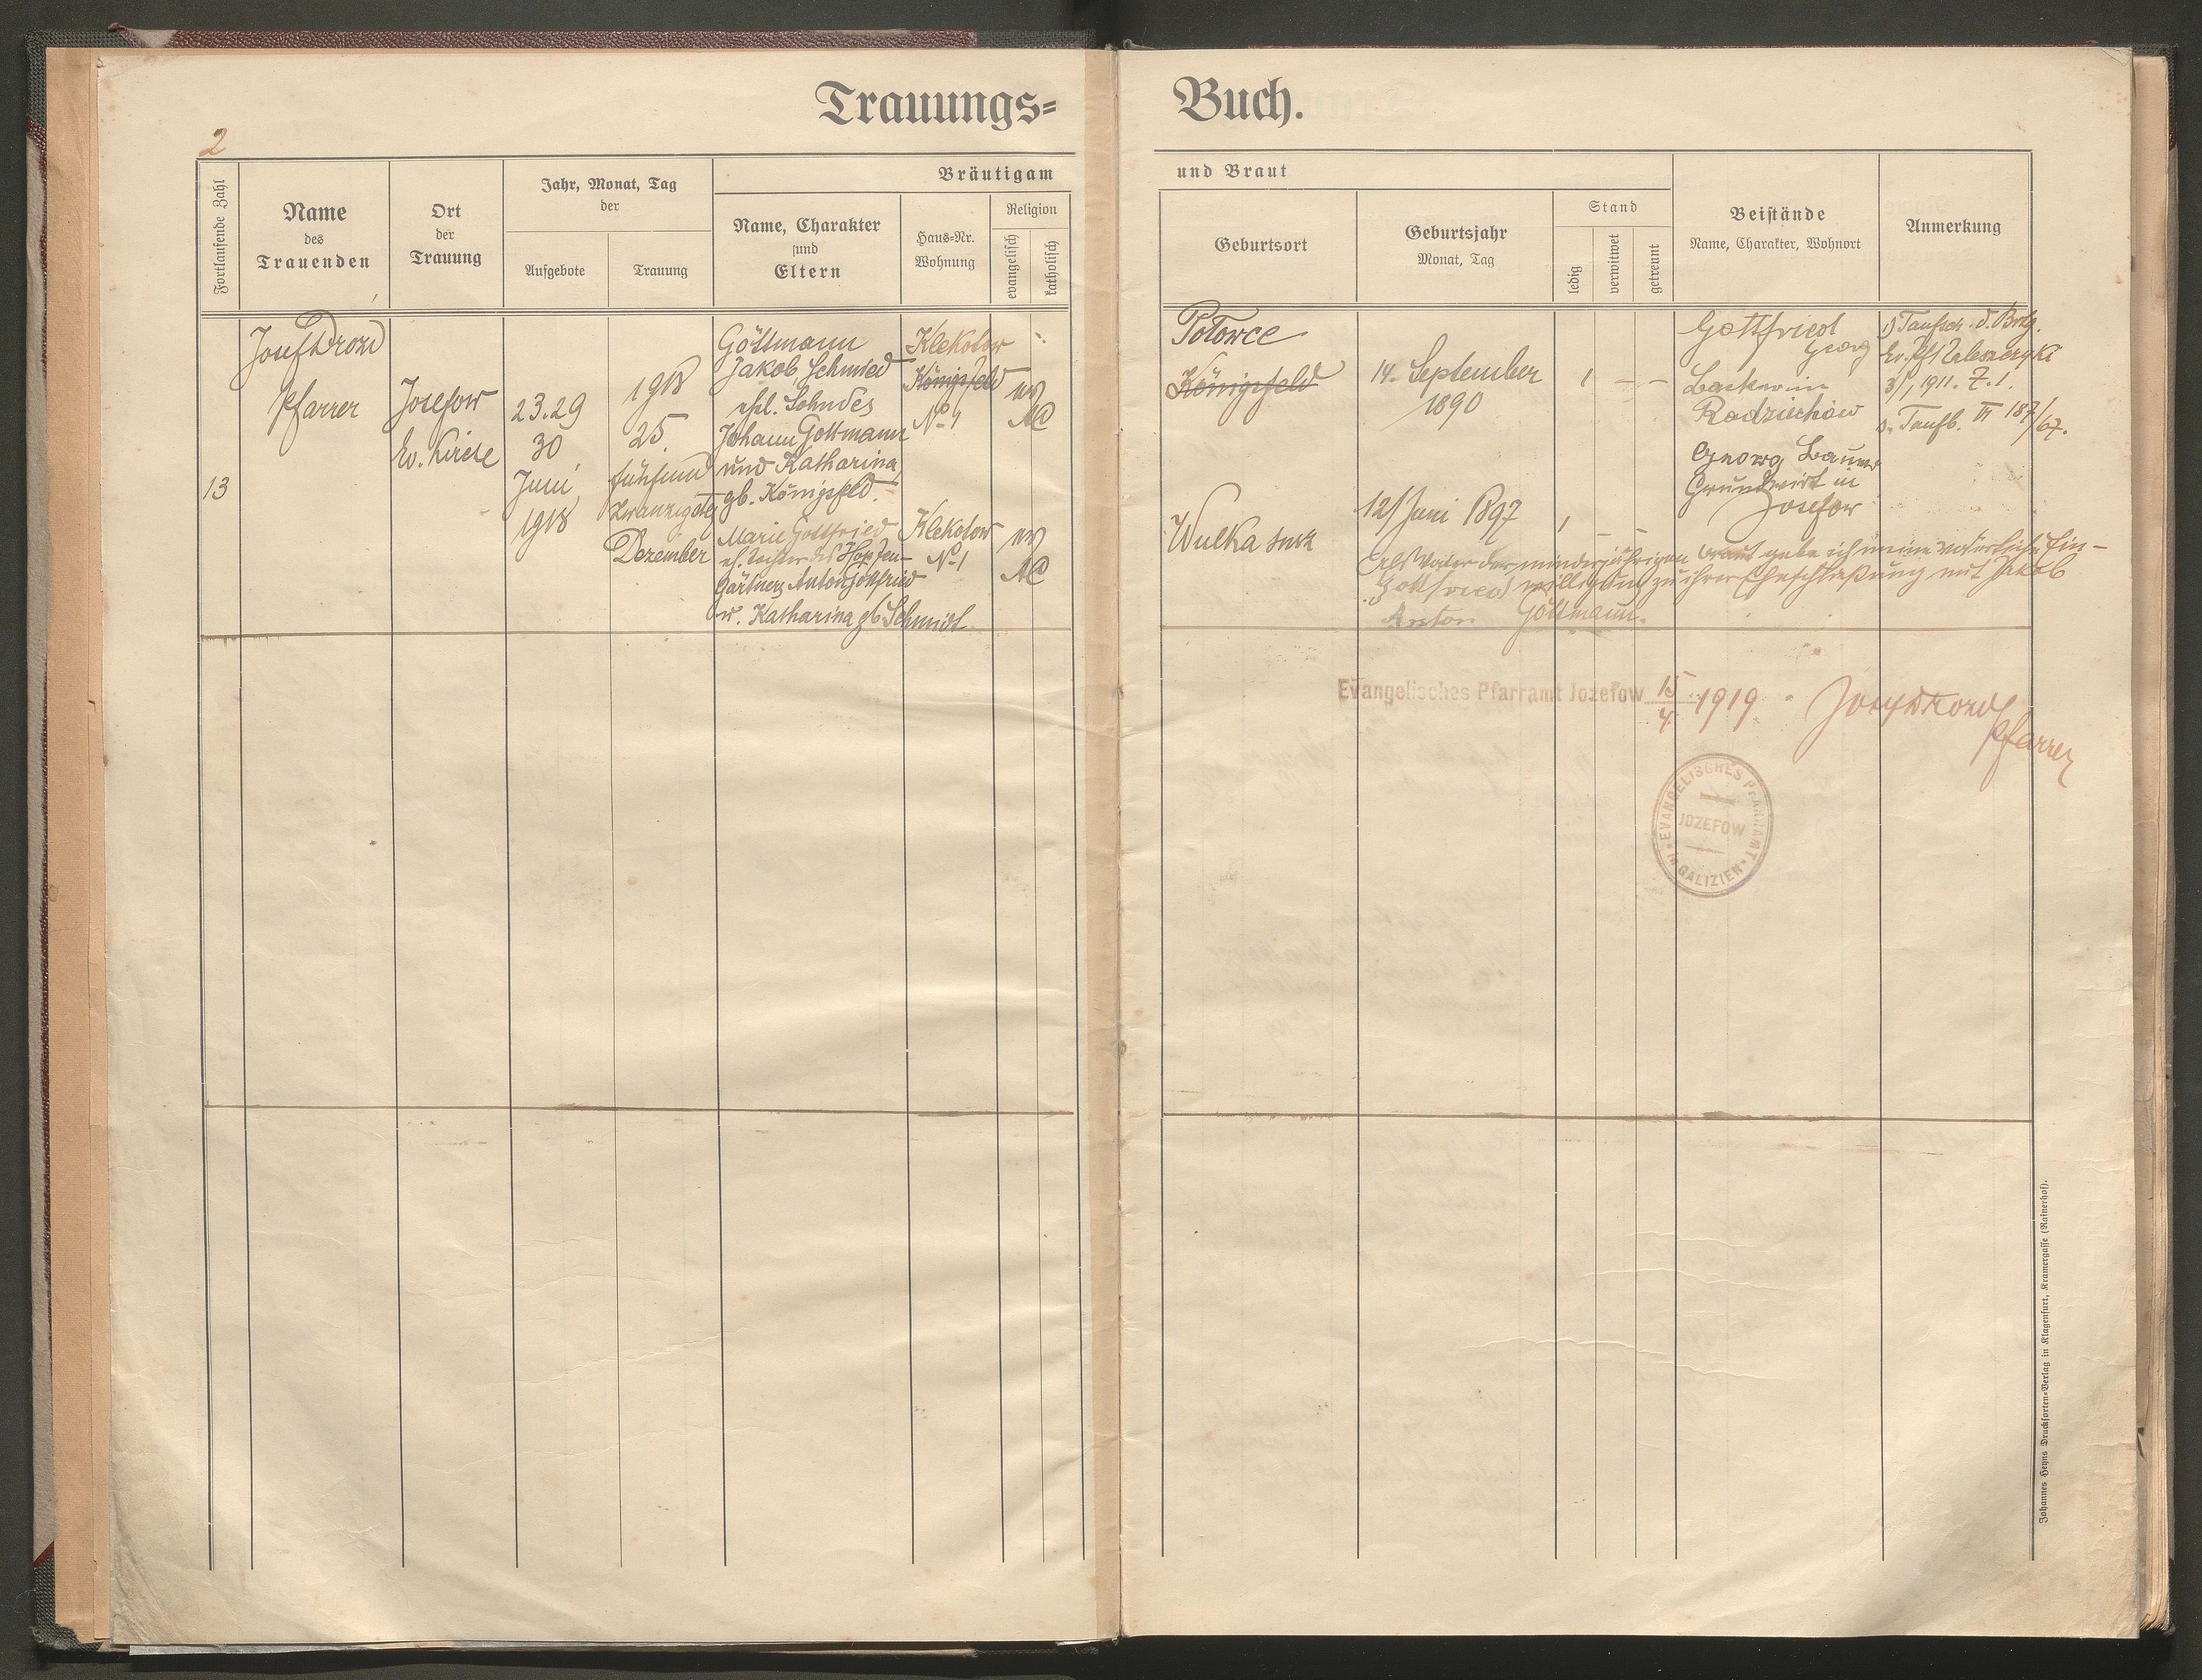 Trauungs= Buch.
2
Fortlaufende Zahl
Name
des
Trauenden
Ort
der
Trauung
Jahr, Monat, Tag
der
Aufgebote
Trauung
Bräutigam und Braut
Name, Charakter
und
Eltern
Haus-Nr.
Wohnung
Religion
evangelisch
katholisch
Geburtsort
Geburtsjahr
Monat, Tag
Stand
ledig
verwitwet
getrennt
Beistände
Name, Charakter, Wohnort
Anmerkung
13
Josef Drozd
Pfarrer
Josefow
Ev. Kirche
23. 29
30
Juni
1918
1918
25.
fünfund
zwanzigste
Dezember
Göttmann
Jakob, Schmied
ehl. Sohn des
Johann Gottmann
und Katharina,
gb. Königsfeld.
Klekotow
Königsfeld
No 1
ev
AC
Polowce
Königsfeld
14. September
1890
1
– –
Gottfried
Georg
Radziechow
Georg Bauer
Grundwirt in
Josefow
1) Taufsch. d. Brtg.
Ev. Pf. Zaleszczyki
3/1, 1911. Z. 1.
s. Taufb. III 187/67.
Marie Gottfried
eh. Tochter des Hopfen-
gärtners Anton Gottfried
u. Katharina gb. Schmidt
Klekotow
No 1
ev
AC
Wulka
12/ Juni 1897
1
Als Vater der minderjährigen Braut gebe ich meine väterliche Ein-
willigung zu ihrer Eheschließung mit Jakob
Göttmann.
Gottfried
Anton
Evangelisches Pfarramt Jozefow 15/4 1919
Josef Drozd
Pfarrer
EVANGELISCHES PFARRAMT
JOZEFOW
IN GALIZIEN
Johannes Heyns Drucksorten-Verlag in Klagenfurt, Kramergasse (Rainerhof).